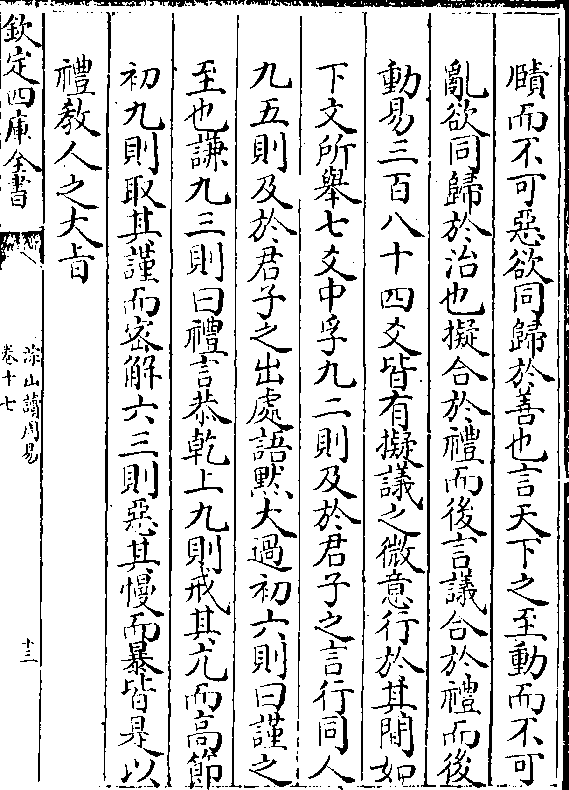 賾而不可惡欲同歸於善也言天下之至動而不可
亂欲同歸於治也擬合於禮而後言議合於禮而後
動易三百八十四爻皆有擬議之微意行於其間如
下文所舉七爻中孚九二則及於君子之言行同人
九五則及於君子之出處語黙大過初六則曰謹之
至也謙九三則曰禮言恭乾上九則戒其亢而高節
初九則取其謹而密解六三則惡其慢而暴皆是以
禮教人之大㫖
欽定四庫全書
涂山讀周易
卷十七
十三